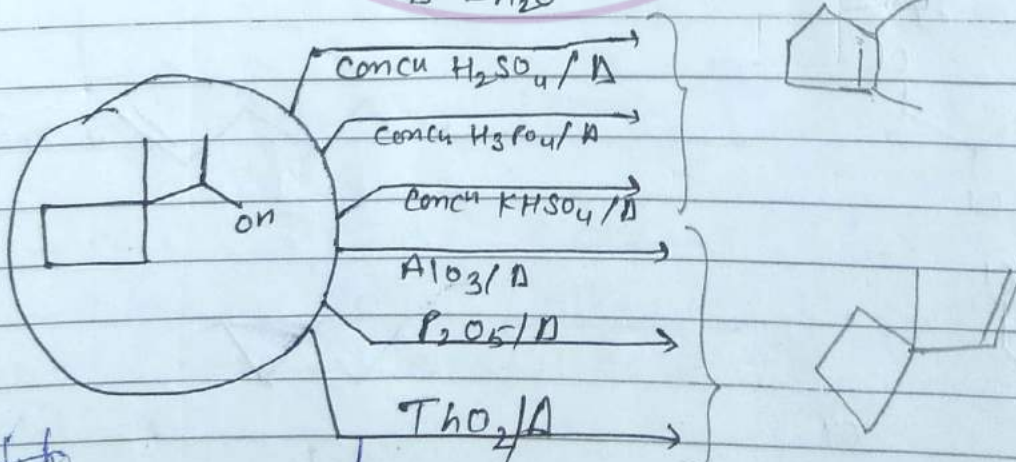 H2O
Concn H2SO4/Δ
Concn H3PO4/Δ
OH
Concn KHSO4/Δ
AlO3/Δ
P2O5/Δ
ThO2/Δ